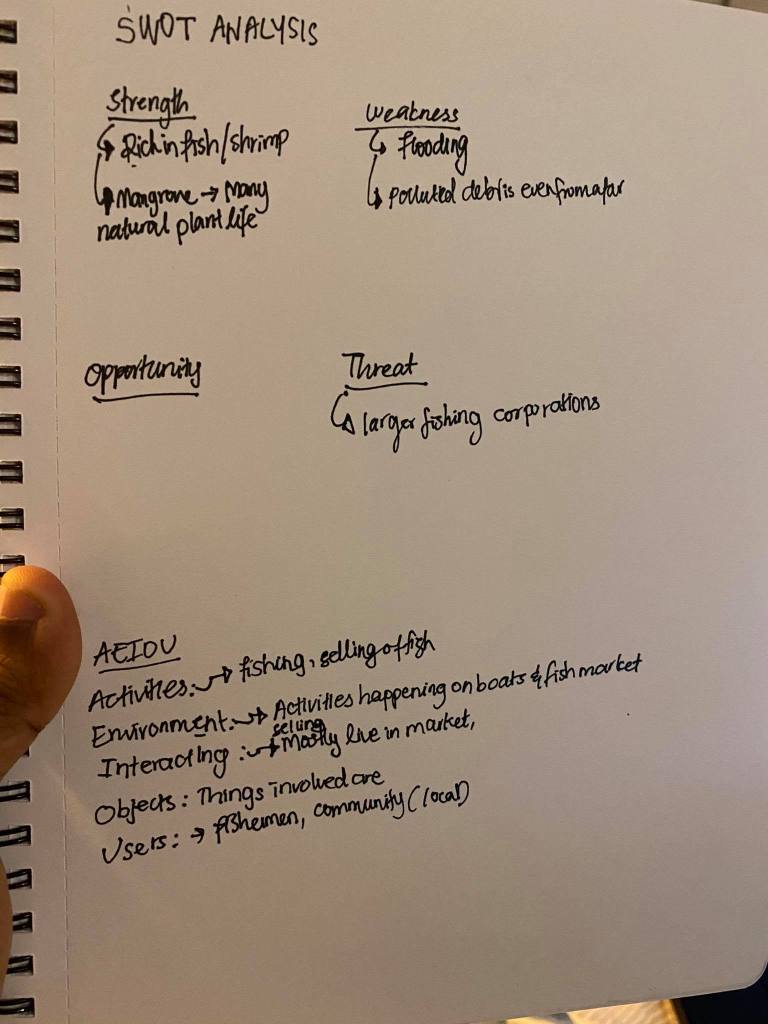 SWOT ANALYSIS
Strength
Rich in fish/shrimp
Mangrove → Many
natural plant life
Weakness
flooding
polluted debris even from afar
Opportunity
Threat
larger fishing corporations
AEIOU
Activities: → fishing, selling of fish
Environment: → Activities happening on boats & fish market
selling
Interacting: → Mostly live in market,
Objects: Things involved are
Users: → fishermen, community (local)